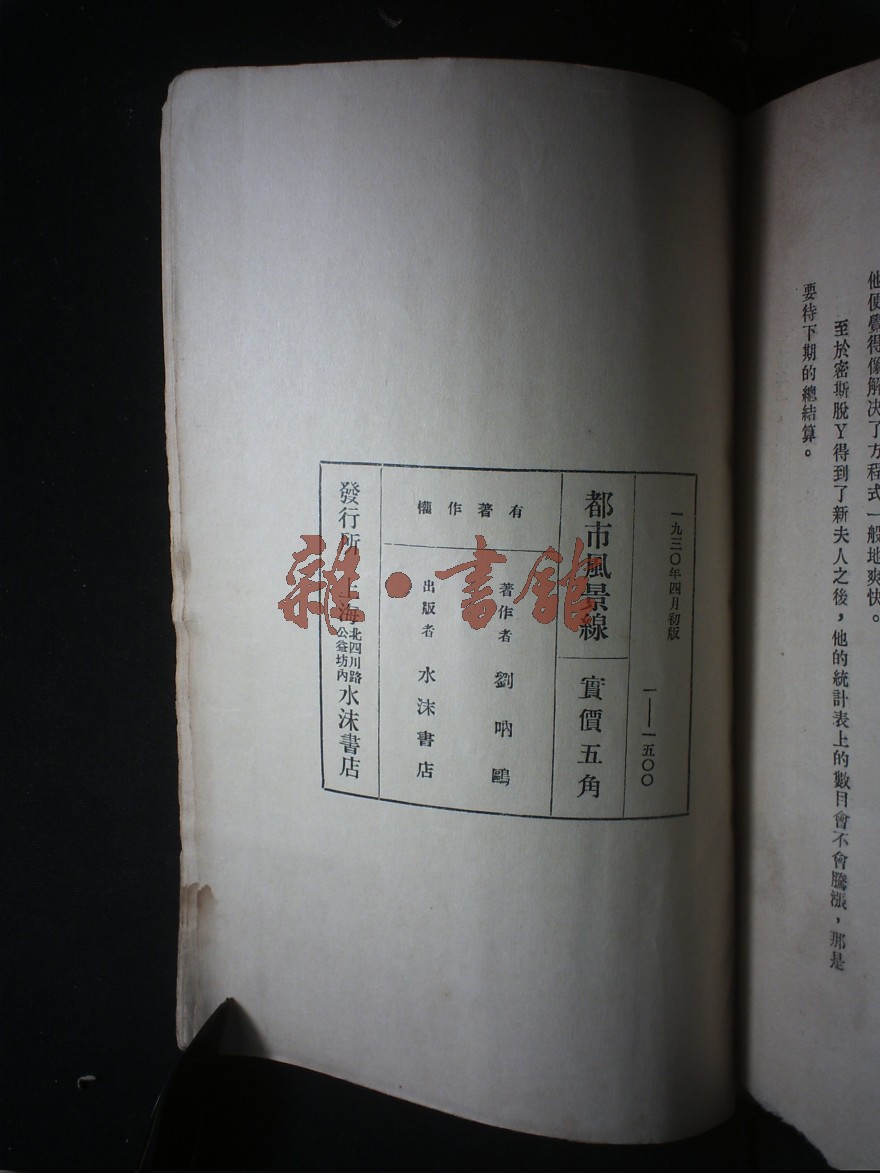 他便覺得像解决了方程式一般地爽快。
至於密斯脫Y得到了新夫人之後，他的統計表上的數目會不會騰漲，那是
要待下期的總結算。
一九三〇年四月初版
一——一五〇〇
都市風景線
實價五角
有著作權
著作者 劉吶鷗
出版者 水沫書店
發行所 上海 北四川路 公益坊內 水沫書店
雜·書館